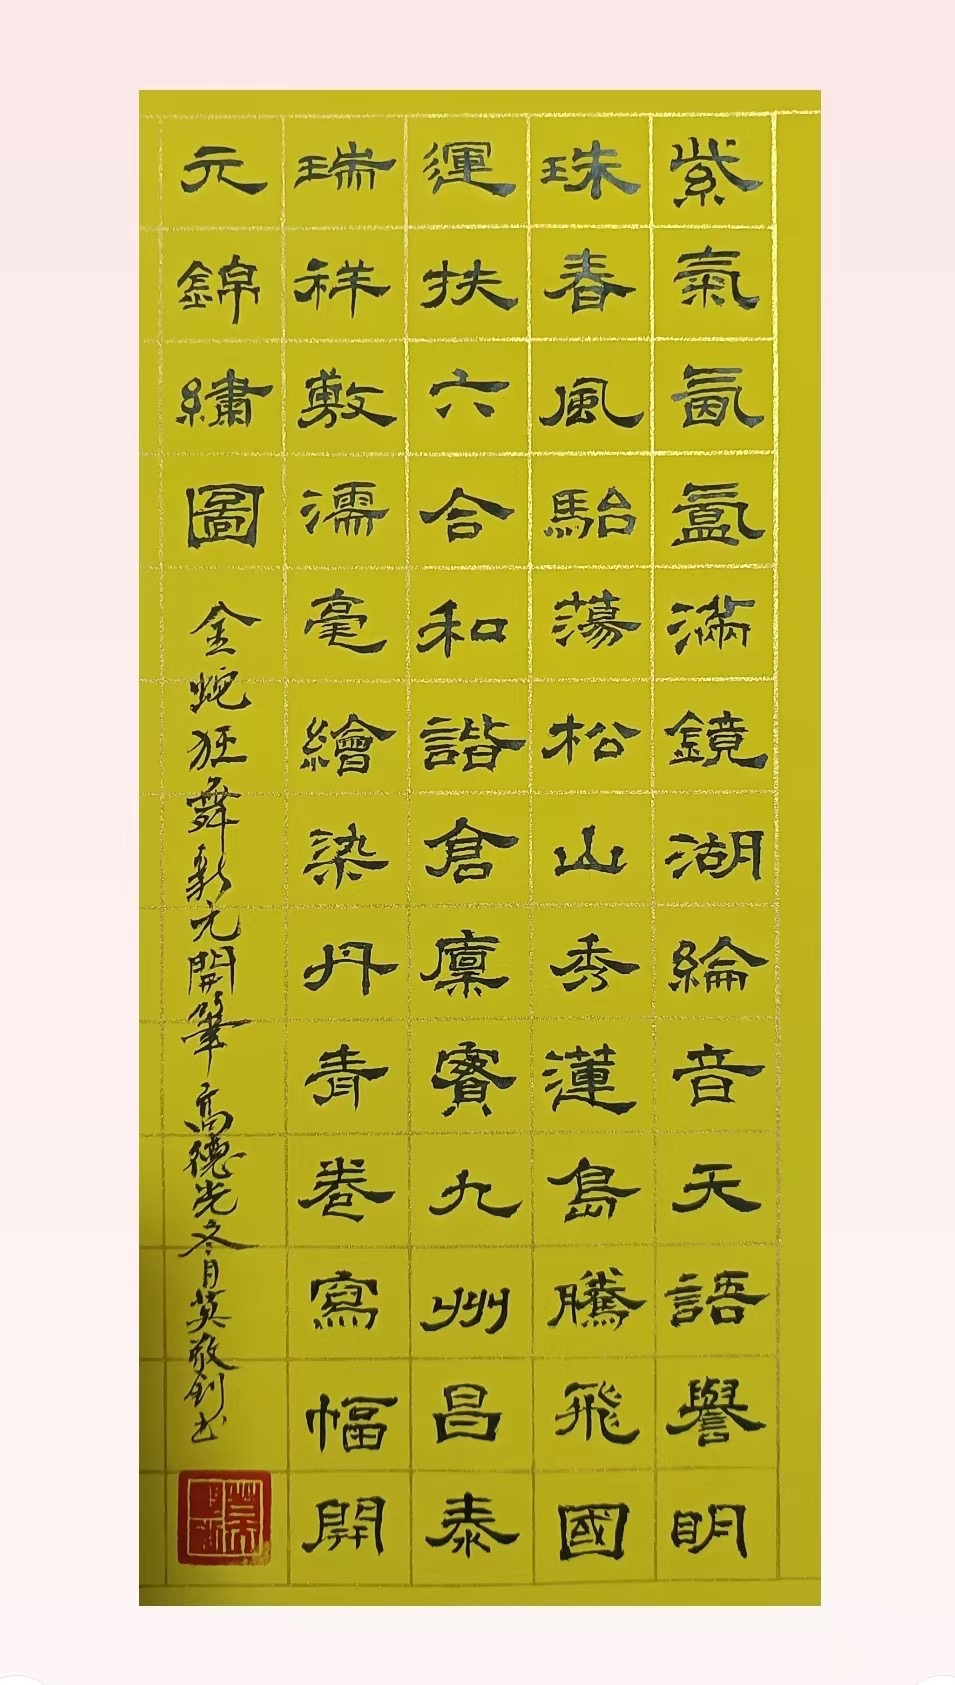 紫氣氤氳滿鏡湖綸音天語譽明
珠春風駘蕩松山秀蓮島騰飛國
運扶六合和諧倉廩實九州昌泰
瑞祥敷濡毫繪染丹青卷寫幅開
元錦繡圖
金蛇狂舞新元開筆高德光冬月英敬創書